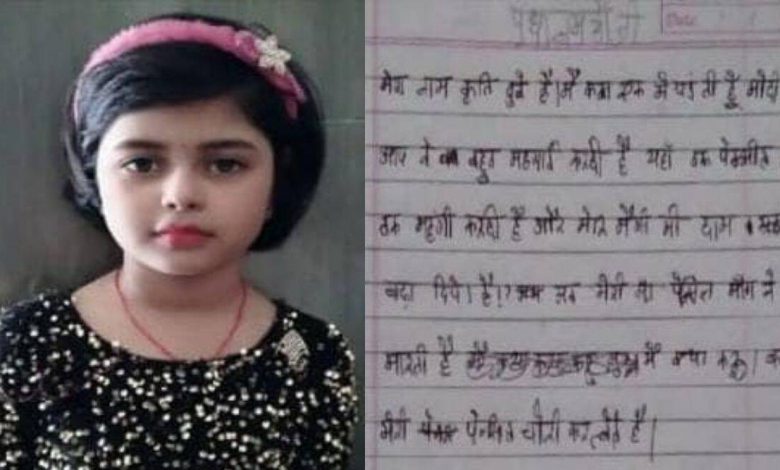 मेरा नाम कृति दुबे है। मै कक्षा एक मे पढ़ती हूँ मोदी
आप ने बहुत महगाई करदी है यहाँ तक पेनसील
तक महगी करदी है और मेरी मैगी की दाम
बढ़ा दिये है। अब मेरी मा पेन्सिल मांग ने
मारती है मै क्या करू।
मेरी पेन्सिल चोरी कर लेते है।